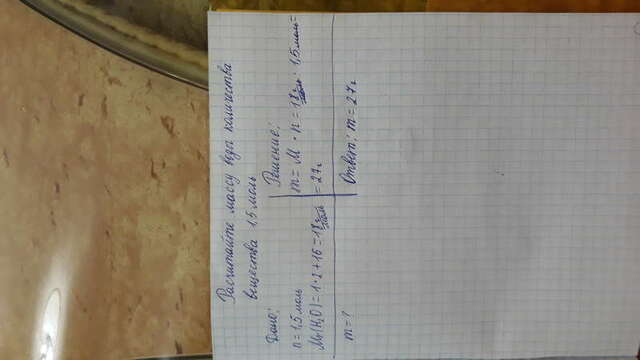 Расчитайте массу воды количества
вещества 1,5 моль
Дано:
n = 1,5 моль
Mr(H₂O) = 1·2+16 = 18 г/моль
m = ?
Решение:
m = M · n = 18 г/моль · 1,5 моль =
= 27 г
Ответ: m = 27 г